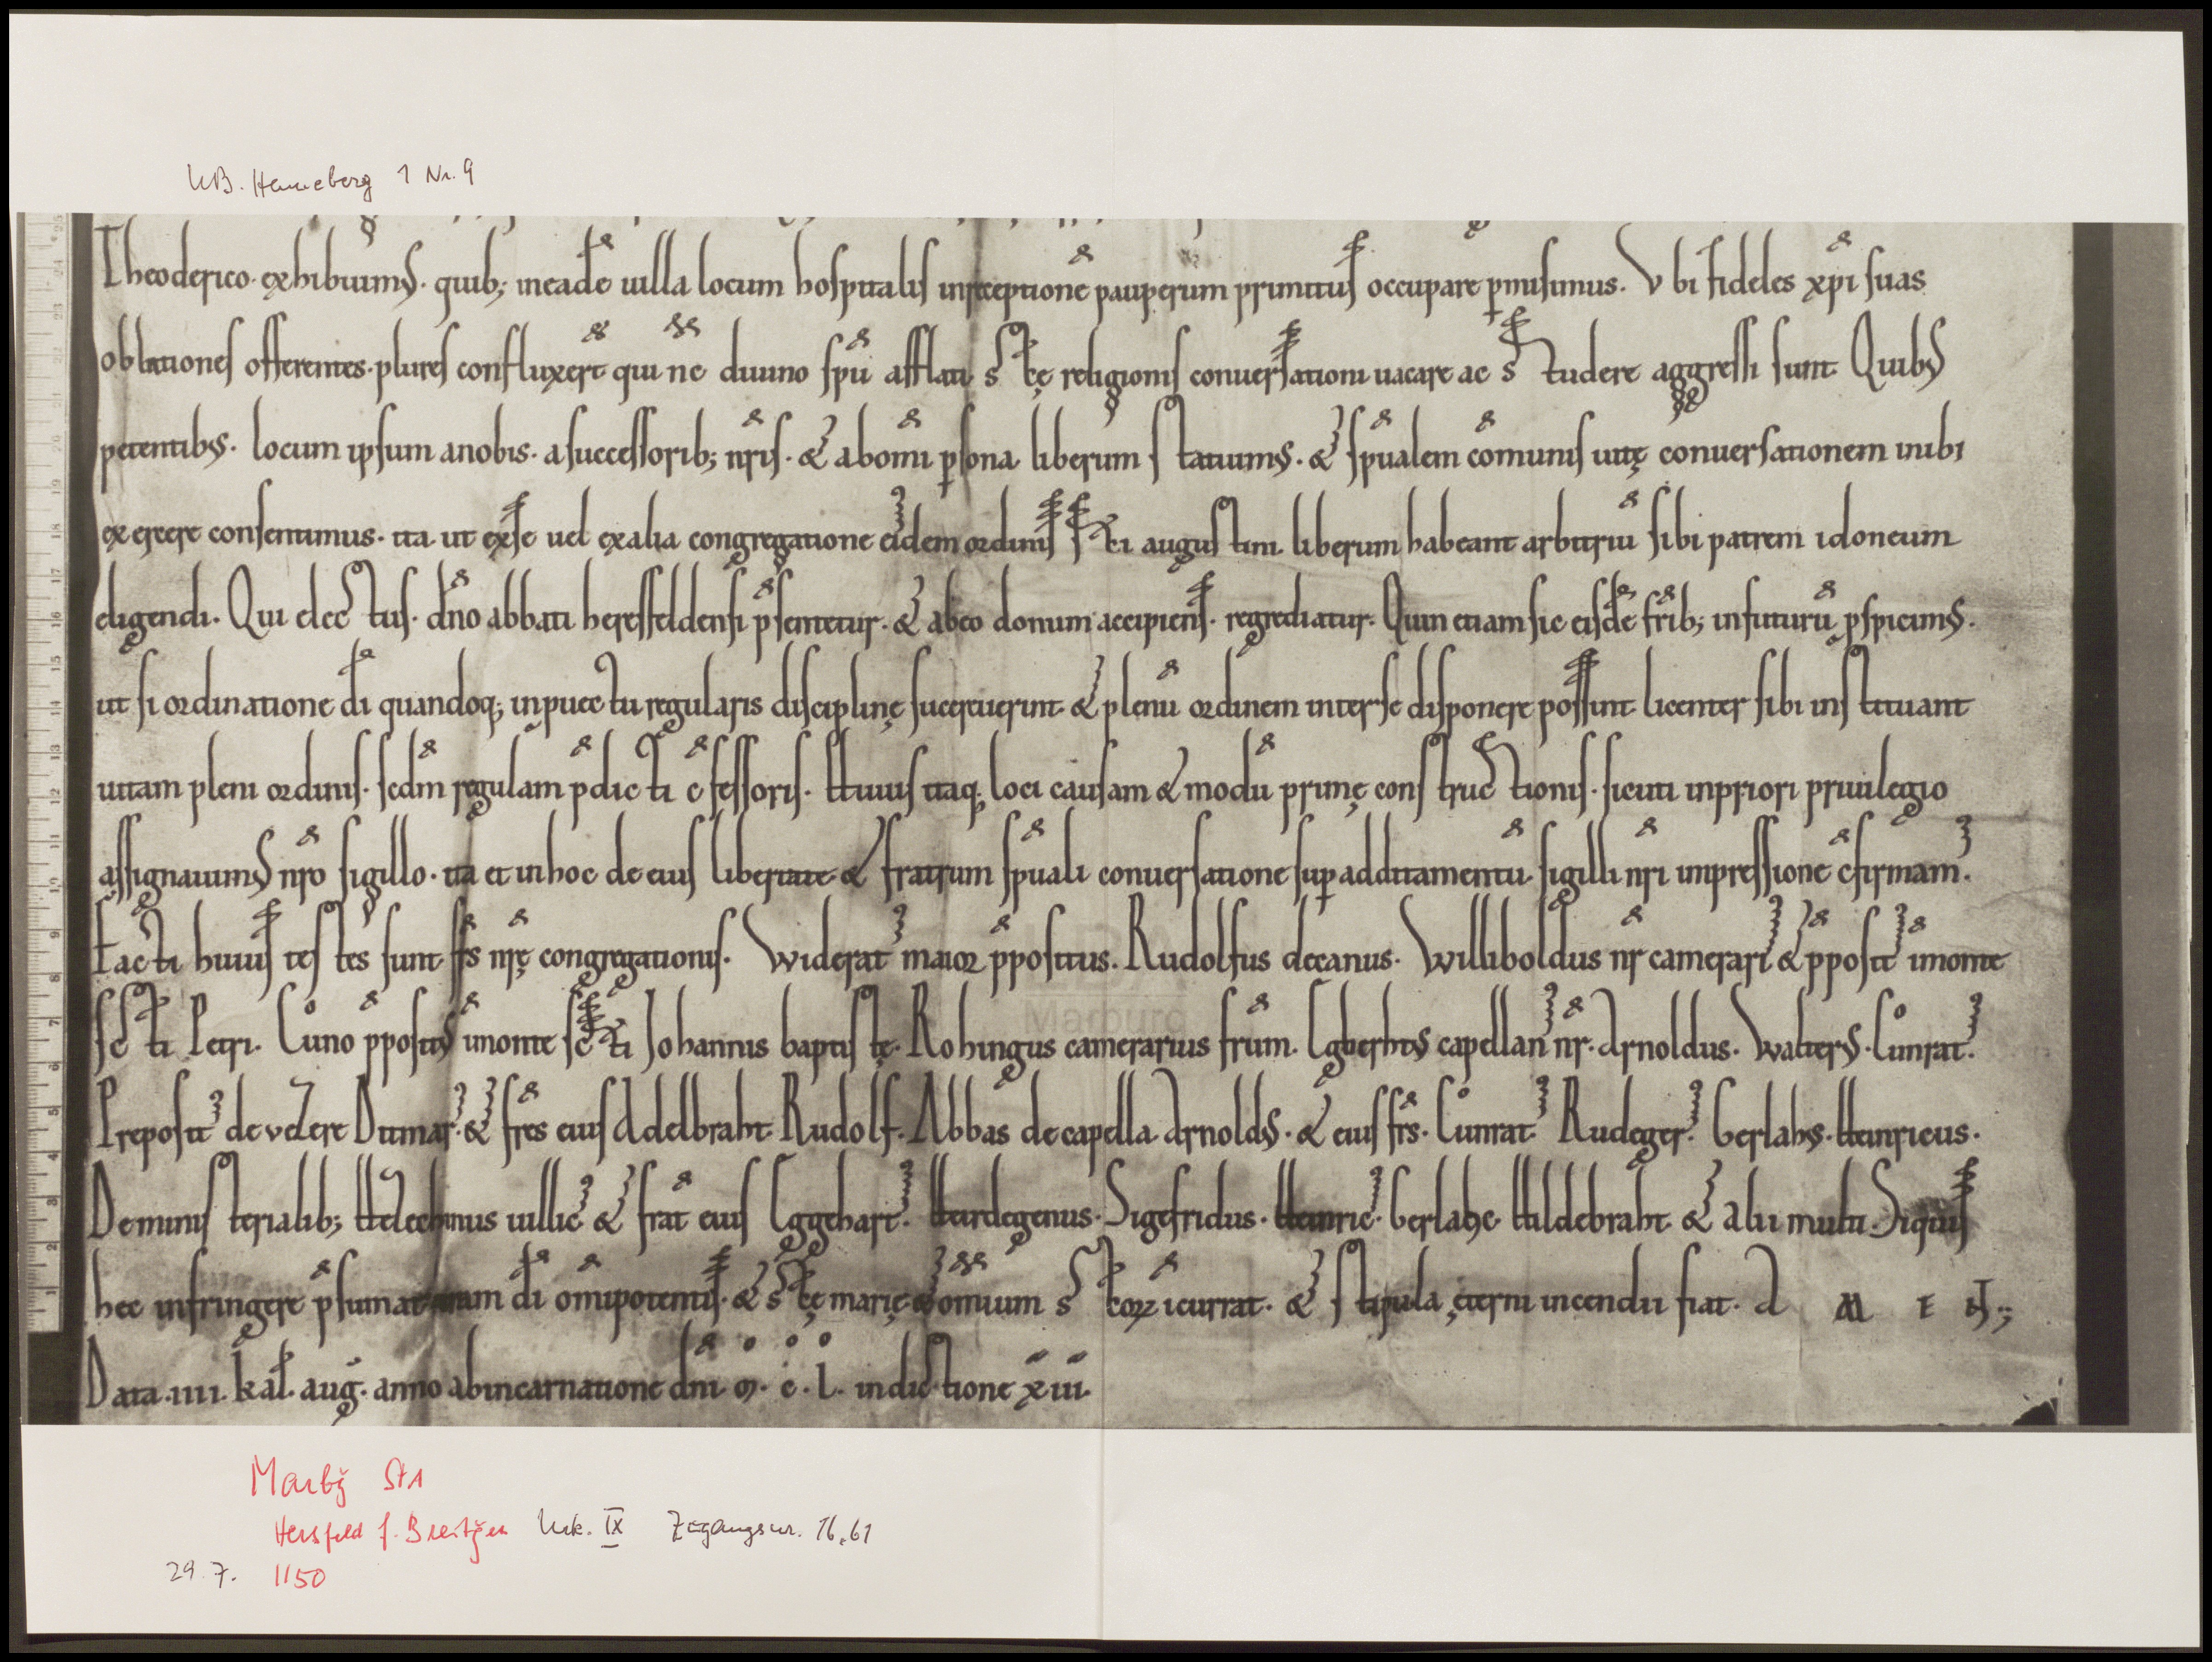 UB. Henneberg 1 Nr. 9
Theoderico. exhibuimꝰ. quib; ineadē uilla locum hospitalis insceptione pauperum primitus occupare p̲misimus. Vbi fideles xp̄i suas
oblationes offerentes. plures confluxert̄ qui nc̄ diuino sp̄u afflati sc̄tę religionis conuersationi uacare ac studere aggressi sunt. Quibꝰ
petentibꝰ. locum ipsum anobis. asuccessorib; nr̄is. & abom̄i ꝑsona liberum statuimꝰ. & sp̄ualem com̄unis uitę conuersationem inibi
exercere consentimus. ita ut exse uel exalia congregatione eidem ordinis sc̄ti augustini liberum habeant arbitriū sibi patrem idoneum
eligendi. Qui electus. dn̄o abbati heresfeldensi p̄sentetur. & abeo donum accipiens. regrediatur. Quin etiam sic eisdē fr̄ib; infuturū ꝓspicimꝰ.
ut si ordinatione dī quandoq; inpuectu regularis disciplinę sucreuerint & plenū ordinem interse disponere possint licenter sibi instituant
uitam pleni ordinis. sedm̄ regulam p̄dicti c̄fessoris. Huius itaq; loci causam & modū primę constructionis. sicuti inpriori priuilegio
assignauimꝰ nr̄o sigillo. ita et inhoc de eius libertate & fratrum sp̄uali conuersatione suꝑadditamentū sigilli nr̄i impressione c̄firmam̄.
Facti huius testes sunt fr̄s nr̄ę congregationis. Widerat̄ maior p̄positus. Rudolfus decanus. Williboldus nr̄ camerari & p̄posit̄ īmonte
sc̄ti Petri. Cůno p̄positꝰ īmonte sc̄ti Johannis baptistę. Rohingus camerarius fr̄um. Egberhtꝰ capellan̄ nr̄. Arnoldus. Walterꝰ. Cůnrat̄.
Preposit̄ de vezere Ditmar̄. & fr̄es eius Adelbraht. Rudolf. Abbas decapella Arnoldꝰ. & eius fr̄s. Cůnrat̄ Rudeger̄. Gerlahꝰ. Heinricus.
Deministerialib; uillic̄ & frāt eius Eggehart̄. Herdegenus. Sigefridus. Heinric̄. Gerlahc. Hildebraht. & alii multi. Siquis
hec infringere p̄sumat dī om̄ipotentis. & sc̄tę marię & om̄ium sc̄torꝝ īcurrat. & stipula ęterni incendii fiat. A M E N;
Data. iiii. kal̄. auḡ. anno abincarnatione dn̄i. m̊. c̊. l̊. indictione xiii.
Marbg StA
Hersfeld f. Breitgen Urk. IX Zugangsnr. 16.61
29. 7. 1150